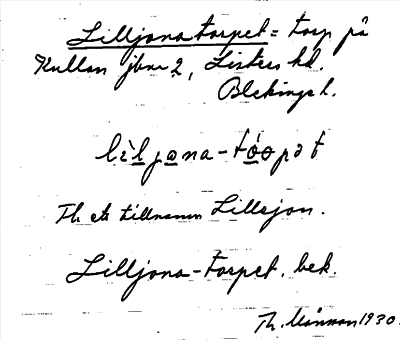 Lilljonatorpet = torp på
Kullan jbnr 2, Listers hd.
Blekinge l.
lìljana-tóopət
Th. ett tillnamn Lillejon.
Lilljona-torpet. bek.
Th. Månsson 1930.